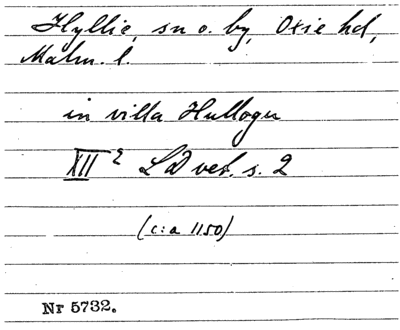 Hyllie, sn o. by, Oxie hd,
Malm. l.
in villa Hullogu
XII 2 LD vet. s. 2
(c:a 1150)
Nr 5732.